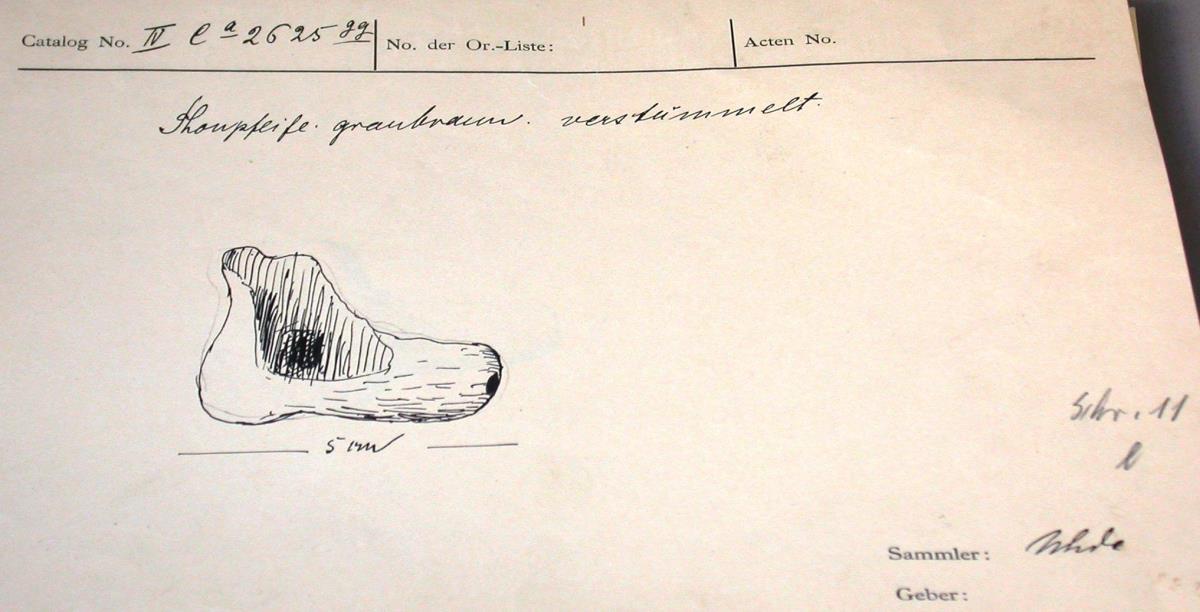 Catalog No. IV C a 2625 gg No. der Or.-Liste: Acten No.
Thonpfeife. graubraun. verstümmelt.
5 cm
Schr. 11
l
Sammler: Uhde
Geber: